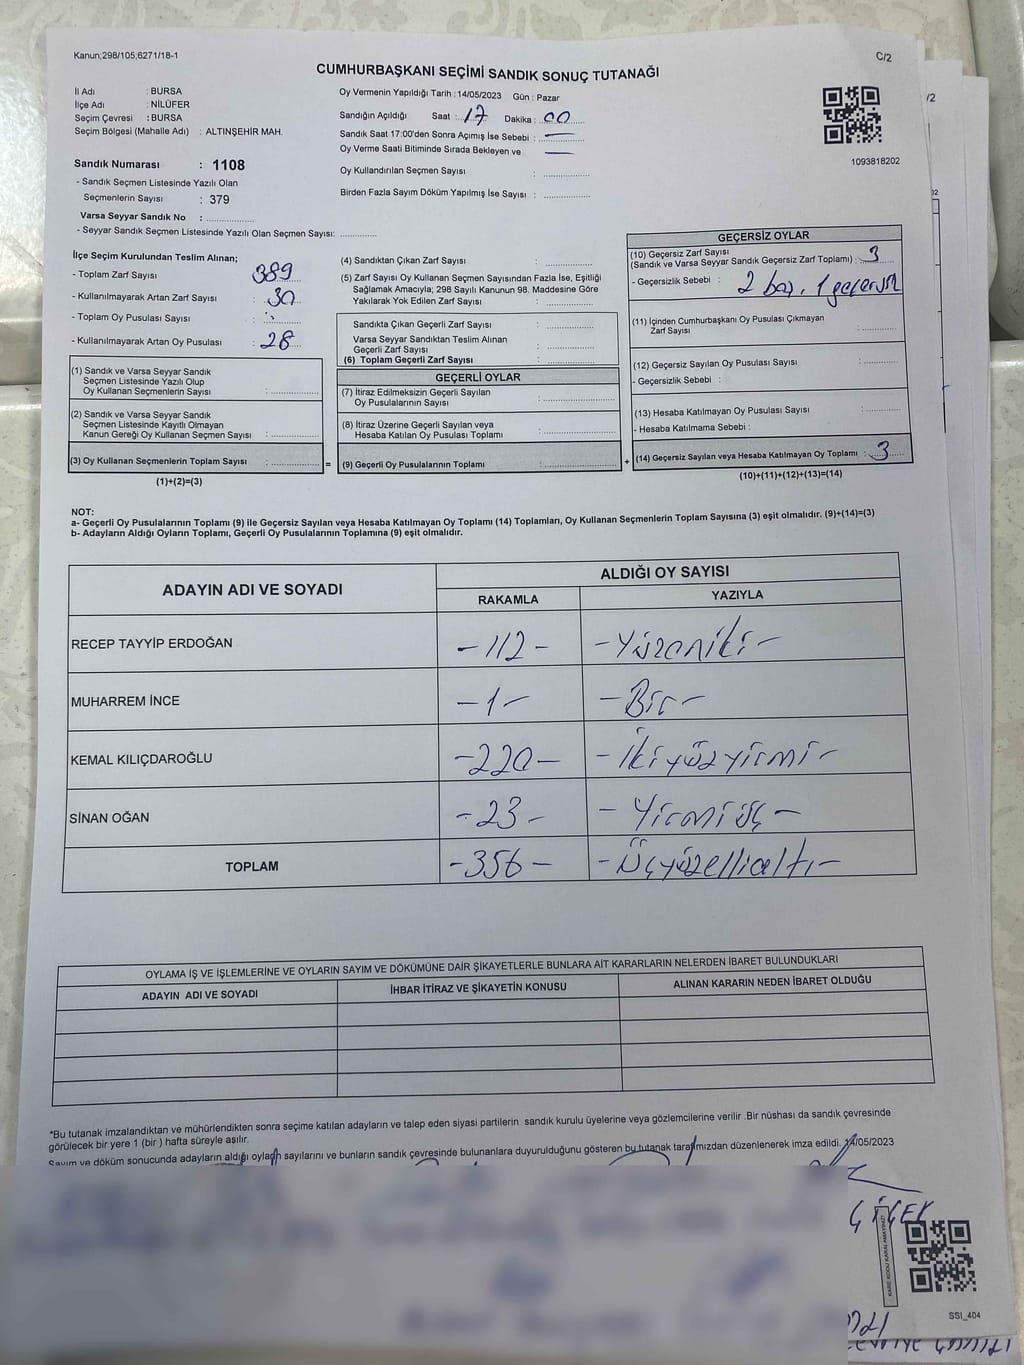 Kanun;298/105;6271/18-1
C/2
CUMHURBAŞKANI SEÇİMİ SANDIK SONUÇ TUTANAĞI
İl Adı : BURSA
İlçe Adı : NİLÜFER
Seçim Çevresi : BURSA
Seçim Bölgesi (Mahalle Adı) : ALTINŞEHİR MAH.
Sandık Numarası : 1108
- Sandık Seçmen Listesinde Yazılı Olan
Seçmenlerin Sayısı : 379
Varsa Seyyar Sandık No : ..............
- Seyyar Sandık Seçmen Listesinde Yazılı Olan Seçmen Sayısı: ............
Oy Vermenin Yapıldığı Tarih : 14/05/2023 Gün : Pazar
Sandığın Açıldığı Saat : 17 Dakika : 00
Sandık Saat 17:00'den Sonra Açımış İse Sebebi : —
Oy Verme Saati Bitiminde Sırada Bekleyen ve —
Oy Kullandırılan Seçmen Sayısı : ..............
Birden Fazla Sayım Döküm Yapılmış İse Sayısı : ..............
1093818202
İlçe Seçim Kurulundan Teslim Alınan;
- Toplam Zarf Sayısı : 389
- Kullanılmayarak Artan Zarf Sayısı : 30
- Toplam Oy Pusulası Sayısı :
- Kullanılmayarak Artan Oy Pusulası : 28
(1) Sandık ve Varsa Seyyar Sandık
Seçmen Listesinde Yazılı Olup
Oy Kullanan Seçmenlerin Sayısı : ..............
(2) Sandık ve Varsa Seyyar Sandık
Seçmen Listesinde Kayıtlı Olmayan
Kanun Gereği Oy Kullanan Seçmen Sayısı : ..............
(3) Oy Kullanan Seçmenlerin Toplam Sayısı : ..............
(1)+(2)=(3)
=
(4) Sandıktan Çıkan Zarf Sayısı : ..............
(5) Zarf Sayısı Oy Kullanan Seçmen Sayısından Fazla İse, Eşitliği
Sağlamak Amacıyla; 298 Sayılı Kanunun 98. Maddesine Göre
Yakılarak Yok Edilen Zarf Sayısı : ..............
Sandıkta Çıkan Geçerli Zarf Sayısı : ..............
Varsa Seyyar Sandıktan Teslim Alınan
Geçerli Zarf Sayısı : ..............
(6) Toplam Geçerli Zarf Sayısı : ..............
GEÇERLİ OYLAR
(7) İtiraz Edilmeksizin Geçerli Sayılan
Oy Pusulalarının Sayısı : ..............
(8) İtiraz Üzerine Geçerli Sayılan veya
Hesaba Katılan Oy Pusulası Toplamı : ..............
(9) Geçerli Oy Pusulalarının Toplamı : ..............
+
GEÇERSİZ OYLAR
(10) Geçersiz Zarf Sayısı
(Sandık ve Varsa Seyyar Sandık Geçersiz Zarf Toplamı) : 3
- Geçersizlik Sebebi : 2 boş, 1 geçersiz
(11) İçinden Cumhurbaşkanı Oy Pusulası Çıkmayan
Zarf Sayısı : ..............
(12) Geçersiz Sayılan Oy Pusulası Sayısı : ..............
- Geçersizlik Sebebi :
(13) Hesaba Katılmayan Oy Pusulası Sayısı : ..............
- Hesaba Katılmama Sebebi :
(14) Geçersiz Sayılan veya Hesaba Katılmayan Oy Toplamı : 3
(10)+(11)+(12)+(13)=(14)
NOT:
a- Geçerli Oy Pusulalarının Toplamı (9) ile Geçersiz Sayılan veya Hesaba Katılmayan Oy Toplamı (14) Toplamları, Oy Kullanan Seçmenlerin Toplam Sayısına (3) eşit olmalıdır. (9)+(14)=(3)
b- Adayların Aldığı Oyların Toplamı, Geçerli Oy Pusulalarının Toplamına (9) eşit olmalıdır.
ADAYIN ADI VE SOYADI
ALDIĞI OY SAYISI
RAKAMLA YAZIYLA
RECEP TAYYİP ERDOĞAN -112- -Yüzoniki-
MUHARREM İNCE -1- -Bir-
KEMAL KILIÇDAROĞLU -220- -İkiyüzyirmi-
SİNAN OĞAN -23- -Yirmiüç-
TOPLAM -356- -Üçyüzellialtı-
OYLAMA İŞ VE İŞLEMLERİNE VE OYLARIN SAYIM VE DÖKÜMÜNE DAİR ŞİKAYETLERLE BUNLARA AİT KARARLARIN NELERDEN İBARET BULUNDUKLARI
ADAYIN ADI VE SOYADI İHBAR İTİRAZ VE ŞİKAYETİN KONUSU ALINAN KARARIN NEDEN İBARET OLDUĞU
*Bu tutanak imzalandıktan ve mühürlendikten sonra seçime katılan adayların ve talep eden siyasi partilerin sandık kurulu üyelerine veya gözlemcilerine verilir .Bir nüshası da sandık çevresinde
görülecek bir yere 1 (bir ) hafta süreyle asılır.
Sayım ve döküm sonucunda adayların aldığı oyların sayılarını ve bunların sandık çevresinde bulunanlara duyurulduğunu gösteren bu tutanak tarafımızdan düzenlenerek imza edildi. 14/05/2023
ÇİÇEK
KARE KODU KARALAMAYINIZ!
SSI_404
/2